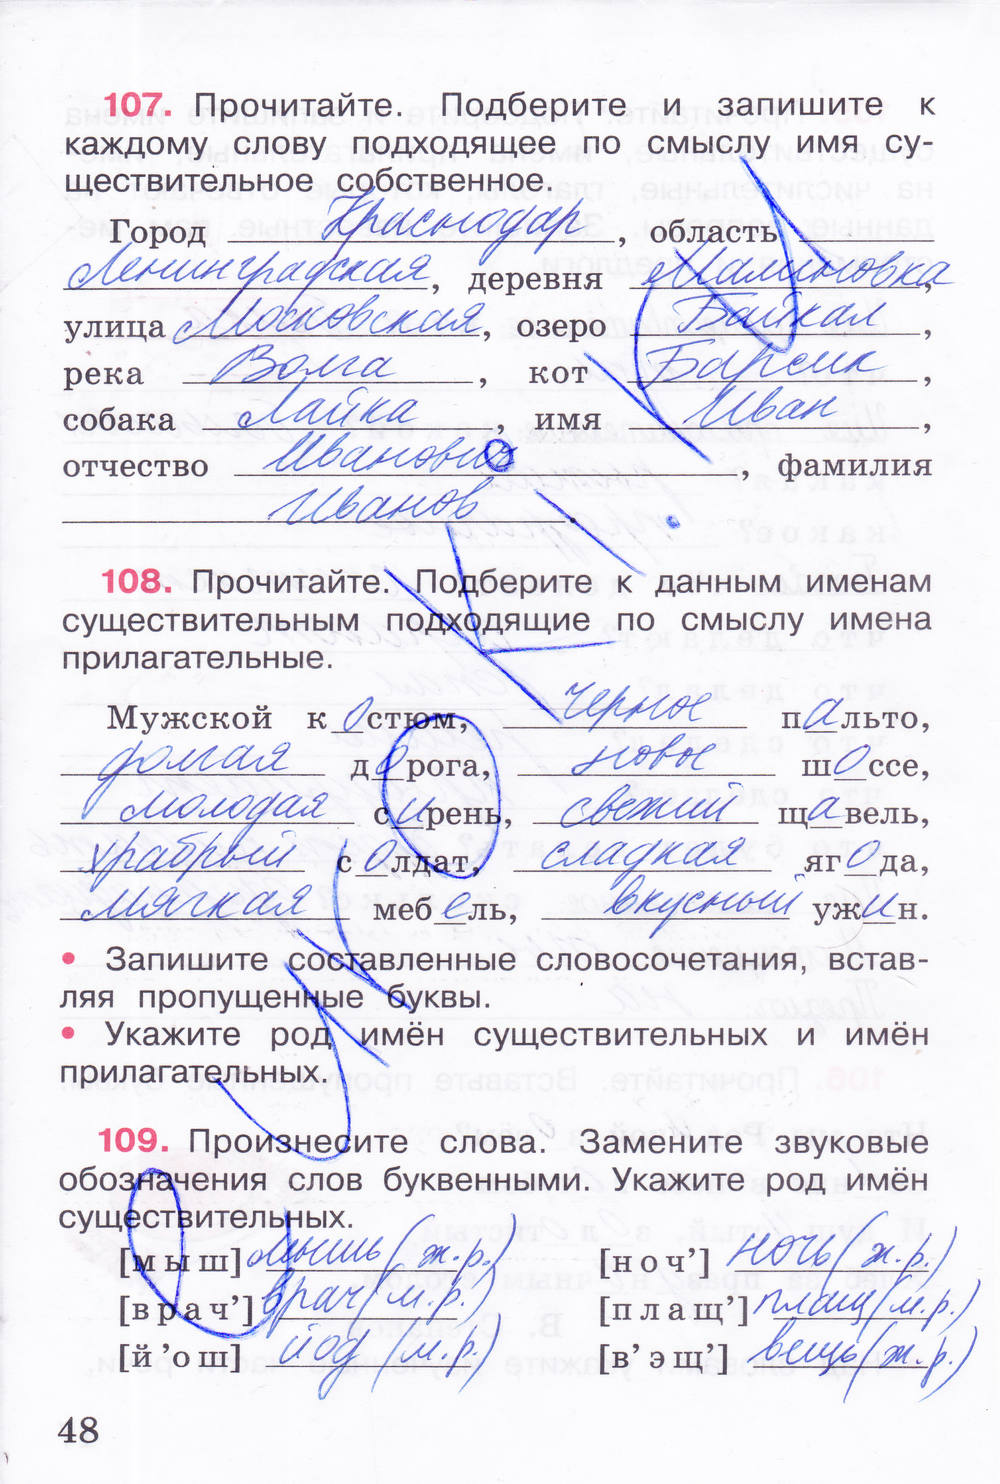 107. Прочитайте. Подберите и запишите к
каждому слову подходящее по смыслу имя су-
ществительное собственное.
Город Краснодар, область
Ленинградская, деревня Малиновка,
улица Московская, озеро Байкал,
река Волга, кот Барсик,
собака Лайка, имя Иван,
отчество Иванович, фамилия
Иванов
108. Прочитайте. Подберите к данным именам
существительным подходящие по смыслу имена
прилагательные.
Мужской костюм, черное пальто,
долгая дорога, новое шоссе,
молодая сирень, свежий щавель,
храбрый солдат, сладкая ягода,
мягкая мебель, вкусный ужин.
• Запишите составленные словосочетания, встав-
ляя пропущенные буквы.
• Укажите род имён существительных и имён
прилагательных.
109. Произнесите слова. Замените звуковые
обозначения слов буквенными. Укажите род имён
существительных.
[мыш] мышь (ж.р.) [ноч'] ночь (ж.р.)
[врач'] врач (м.р.) [плащ'] плащ (м.р.)
[й'ош] йод (м.р.) [в'эщ'] вещь (ж.р.)
48